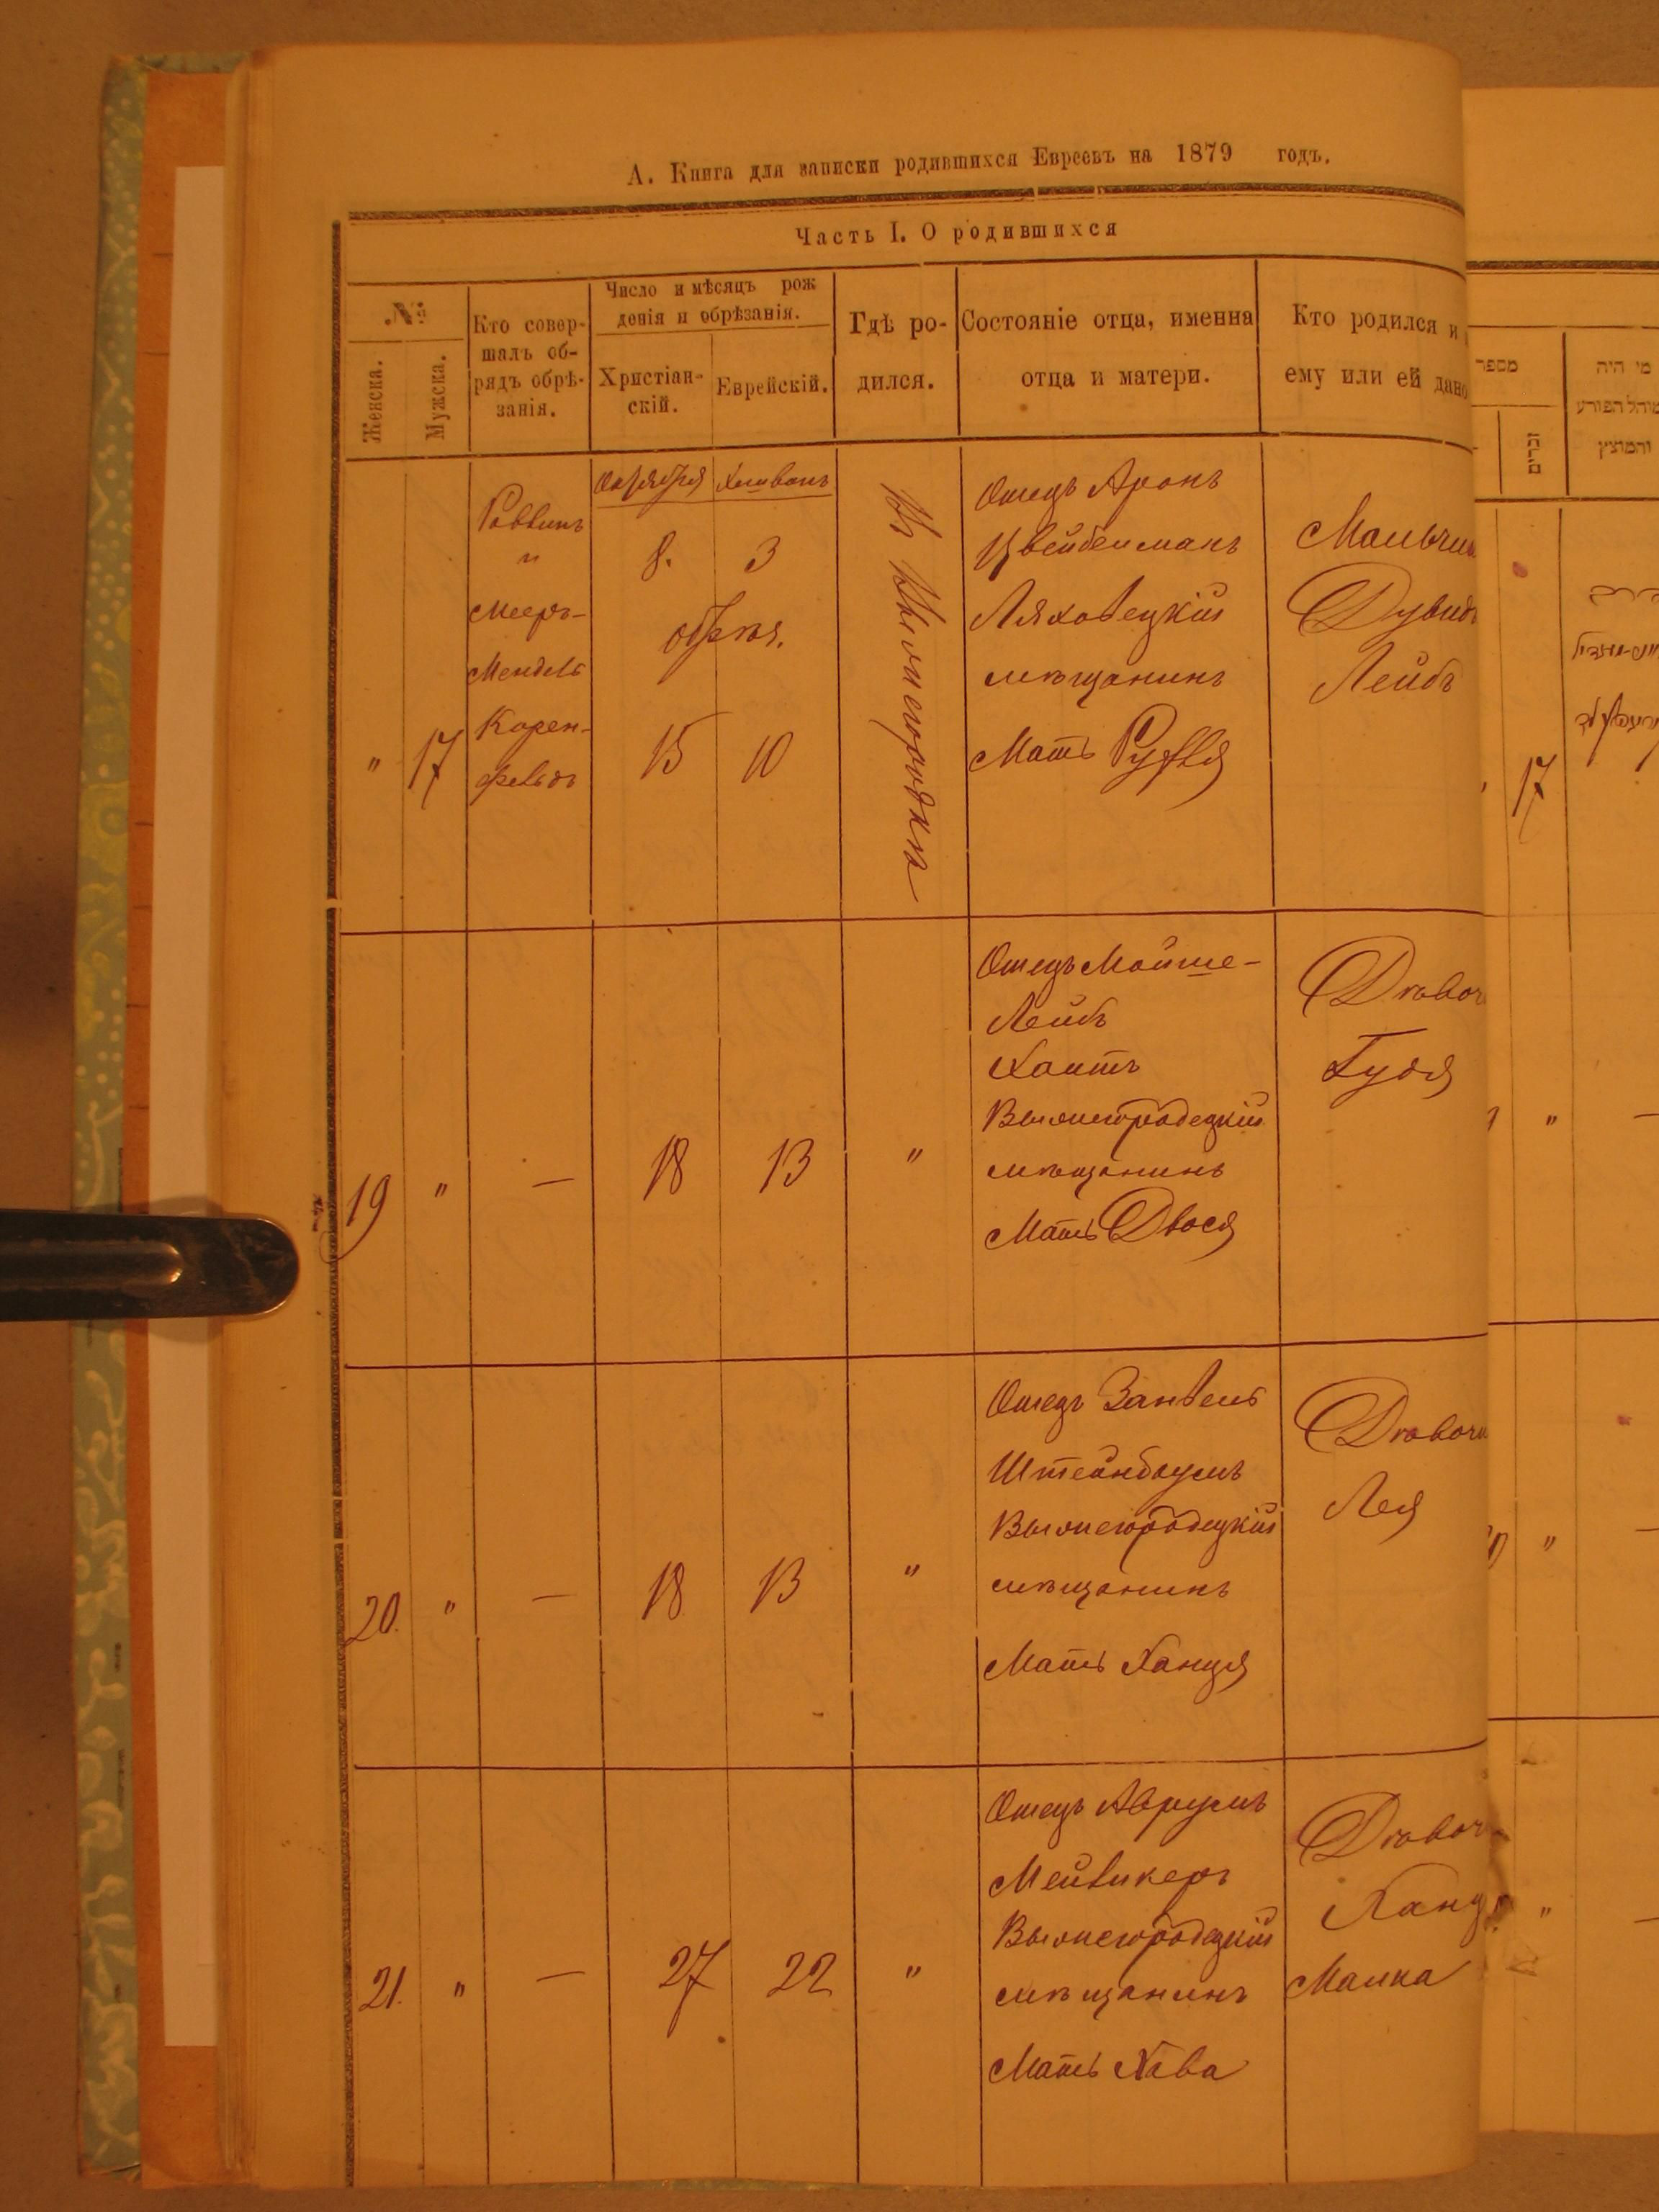 А. Книга для записки родившихся Евреевъ на 1879 годъ.
Часть I. О родившихся
№
Женска.
Мужска.
Кто совер-
шалъ об-
рядъ обрѣ-
занія.
Число и мѣсяцъ рож
денія и обрѣзанія.
Христіан-
скій.
Еврейскій.
Гдѣ ро-
дился.
Состояніе отца, именна
отца и матери.
Кто родился и
ему или ей дано
" 17
Раввинъ
и
Мееръ-
Мендель
Корен-
фельдъ
Октября Хешванъ
8. 3
обрѣз.
15 10
Отецъ Аронъ
Цвейбенманъ
Ляховецкій
мѣщанинъ
Мать Рухля
Мальчи
Дувидъ
Лейбъ
19 " — 18 13 "
Отецъ Мойше-
Лейбъ
Хаитъ
Вышегородецкій
мѣщанинъ
Мать Двося
Дѣвоч
Гудя
20. " — 18 13 "
Отецъ Занвель
Штейнбаумъ
Вышегородецкій
мѣщанинъ
Мать Ханця
Дѣвочк
Лея
21. " — 27 22 "
Отецъ Аврумъ
Мейвикеръ
Вышегородецкій
мѣщанинъ
Мать Хава
Дѣвоч
Малка
מספר
זכרים
מי היה
מוהל הפורע
והמוצץ
17
"
"
"